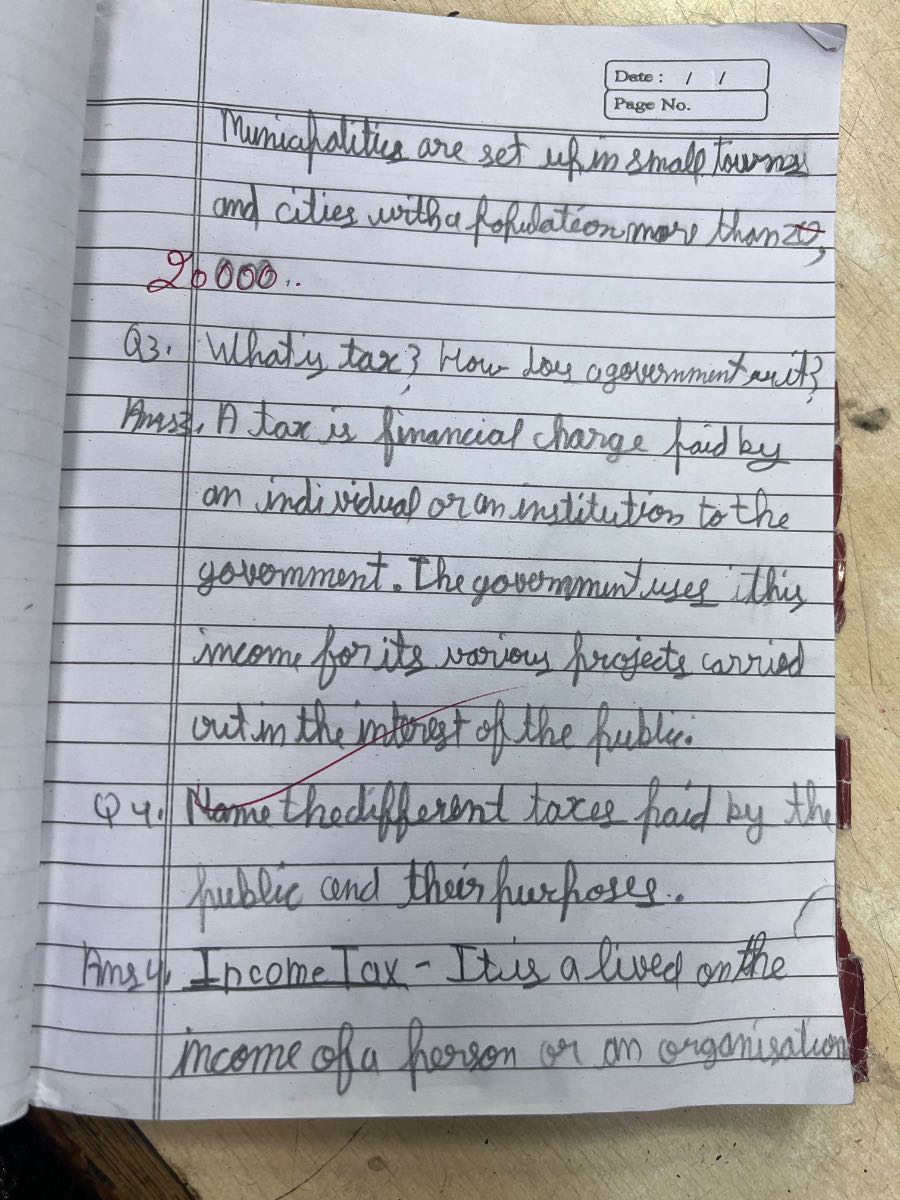 Date : / /
Page No.
Municipalities are set up in small towns
and cities with a population more than 20,
20000..
Q3. What is tax? How does a government use it?
Ans3. A tax is financial charge paid by
an individual or an institution to the
government. The government uses this
income for its various projects carried
out in the interest of the public.
Q4. Name the different taxes paid by the
public and their purposes..
Ans4. Income Tax - It is a lived on the
income of a person or an organisation